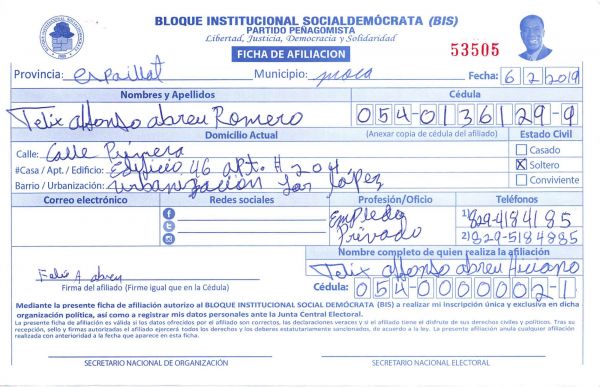 BLOQUE INSTITUCIONAL SOCIALDEMÓCRATA (BIS)
PARTIDO PEÑAGOMISTA
Libertad, Justicia, Democracia y Solidaridad
FICHA DE AFILIACION
53505
Provincia: Espaillat Municipio: moca Fecha: 6 / 2 / 2019
Nombres y Apellidos Cédula
Felix Alfonso abreu Romero 054-0136129-9
Domicilio Actual (Anexar copia de cédula del afiliado) Estado Civil
Calle: Calle Primera Casado
#Casa / Apt. / Edificio: Edificio 46 apt. # 204 X Soltero
Barrio / Urbanización: Urbanización Los López Conviviente
Correo electrónico Redes sociales Profesión/Oficio Teléfonos
Empleado 1) 829-4184185
Privado 2) 829-5184885
Nombre completo de quien realiza la afiliación
Felix A abreu Felix Alfonso abreu
Firma del afiliado (Firme igual que en la Cédula) Cédula: 054-0000002-1
Mediante la presente ficha de afiliación autorizo al BLOQUE INSTITUCIONAL SOCIAL DEMÓCRATA (BIS) a realizar mi inscripción única y exclusiva en dicha
organización política, así como a registrar mis datos personales ante la Junta Central Electoral.
La presente ficha de afiliación es válida si los datos ofrecidos por el afiliado son correctos, las declaraciones veraces y si el afiliado tiene el disfrute de sus derechos civiles y políticos. Tras su
recepción, sello y firmas autorizadas el afiliado ejercerá todos los derechos y los deberes estatutariamente sancionados, de acuerdo a la ley. La presente afiliación anula cualquier afiliación
realizada con anterioridad a la fecha que aparece en esta ficha.
SECRETARIO NACIONAL DE ORGANIZACIÓN SECRETARIO NACIONAL ELECTORAL